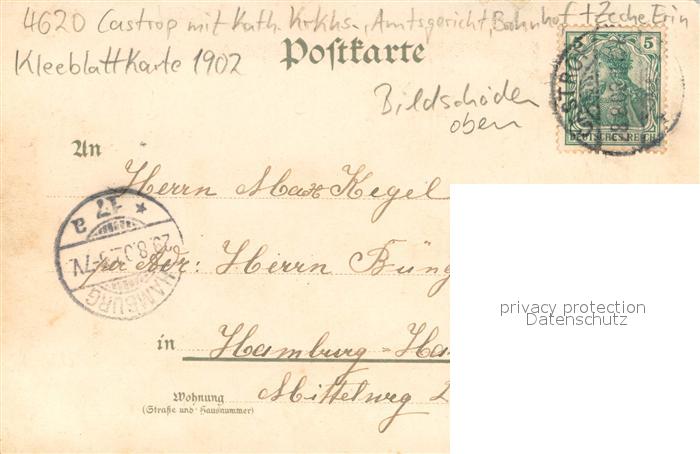 4620 Castrop mit Kath. Krkhs., Amtsgericht, Bahnhof + Zeche Erin
Postkarte
Kleeblattkarte 1902
Bildschäden
oben
5
DEUTSCHES REICH
CASTROP
An
Herrn Max Kegel
per Adr: Herrn Büng
in Hamburg-Ha
Wohnung
(Straße und Hausnummer)
Mittelweg 2
* 17 a
HAMBURG
privacy protection
Datenschutz